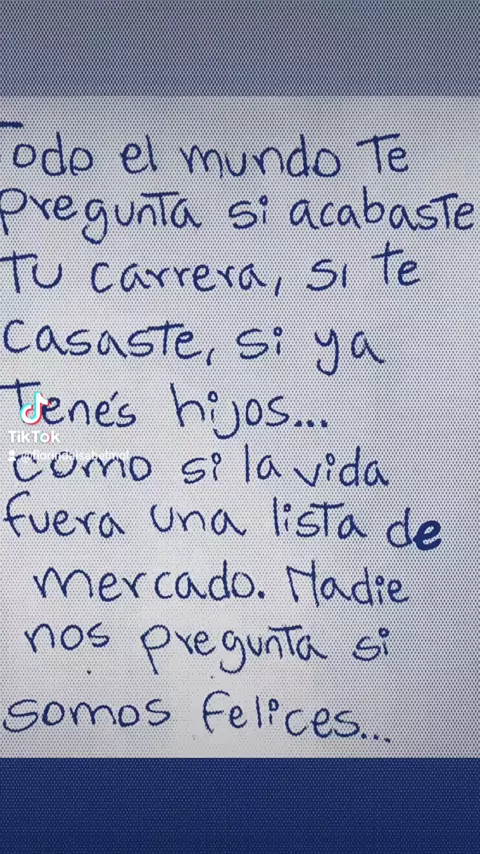 Todo el mundo Te
pregunTa si acabasTe
Tu carrera, si te
casasTe, si ya
Tenés hijos...
TikTok
como si la vida
fuera una lisTa de
mercado. Nadie
nos pregunTa si
somos felices...